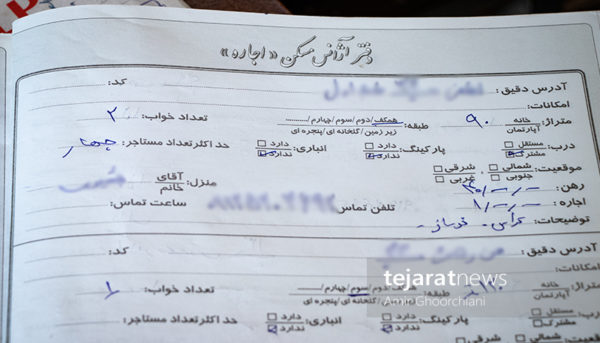 دفتر آژانس مسکن «اجاره»
آدرس دقیق: کد:
امکانات:
متراژ: خانه / آپارتمان ۹۰ طبقه: همکف/دوم/سوم/چهارم/.......... زیرزمین/گلخانه ای/پنجره ای تعداد خواب: ۲
درب: مستقل □ مشترک □ پارکینگ: دارد □ ندارد □ انباری: دارد □ ندارد □ حداکثر تعداد مستاجر: چهار
موقعیت: شمالی □ جنوبی □ شرقی □ غربی □
رهن: ۳۰/-/- منزل: آقای / خانم
اجاره: ۱/-/- تلفن تماس ساعت تماس:
توضیحات:
آدرس دقیق: کد:
امکانات:
متراژ: خانه / آپارتمان طبقه: همکف/دوم/سوم/چهارم/.......... گلخانه ای/پنجره ای تعداد خواب: ۱
درب: مستقل □ مشترک □ پارکینگ: دارد □ ندارد □ انباری: دارد □ ندارد □ حداکثر تعداد مستاجر:
شمالی □ شرقی □
tejaratnews
Amir Ghoorchiani